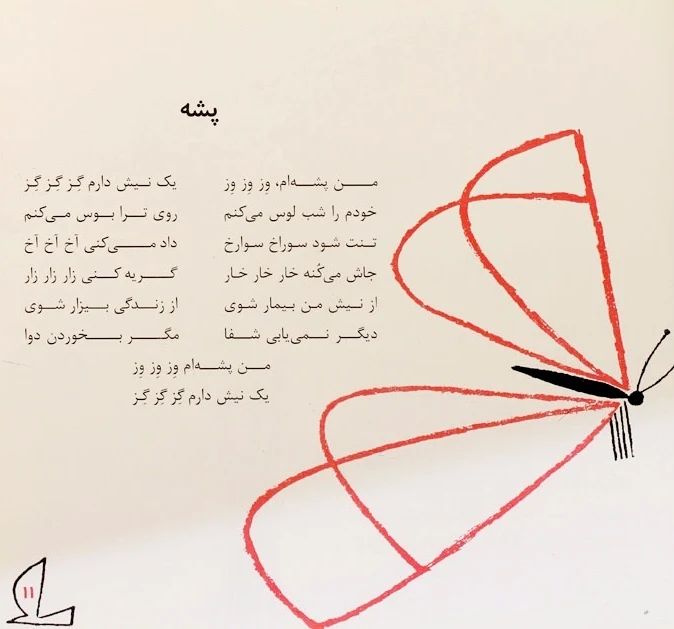 پشه
من پشه‌ام، وِز وِز وِز یک نیش دارم گِز گِز گِز
خودم را شب لوس می‌کنم روی ترا بوس می‌کنم
تنت شود سوراخ سوارخ داد می‌کنی آخ آخ آخ
جاش می‌کُنه خار خار خار گریه کنی زار زار زار
از نیش من بیمار شوی از زندگی بیزار شوی
دیگر نمی‌یابی شفا مگر بخوردن دوا
من پشه‌ام وِز وِز وِز
یک نیش دارم گِز گِز گِز
۱۱